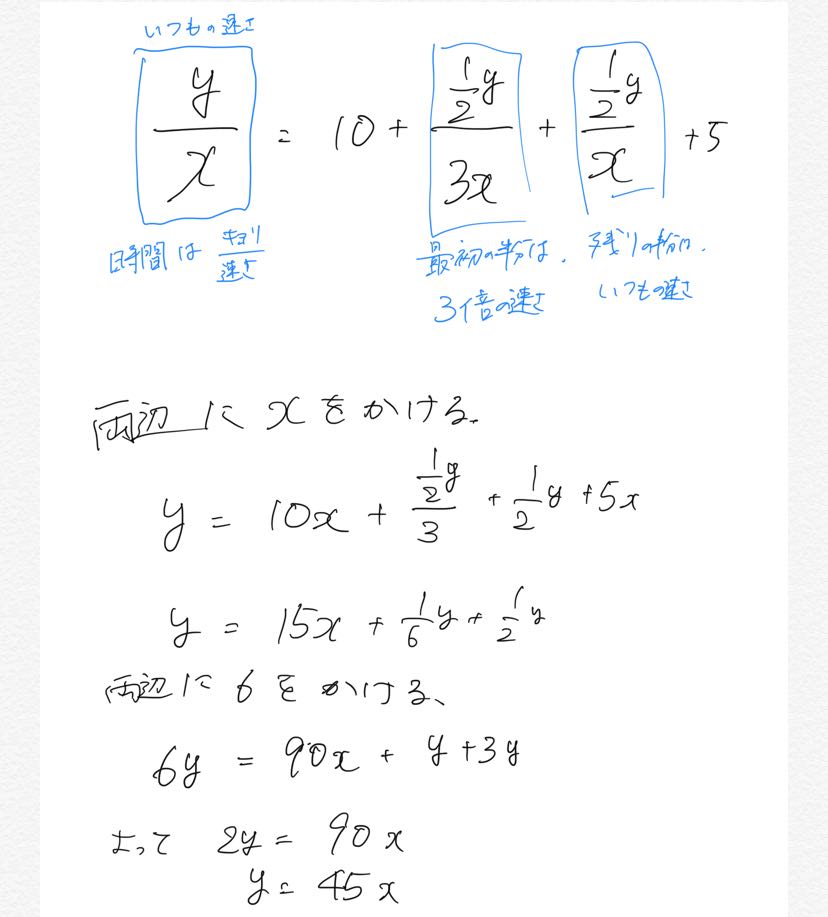 いつもの速さ
y/x = 10 + (1/2 y)/(3x) + (1/2 y)/x + 5
時間は キョリ/速さ
最初の半分は、
3倍の速さ
残りの半分は、
いつもの速さ
両辺に x をかける。
y = 10x + (1/2 y)/3 + 1/2 y + 5x
y = 15x + 1/6 y + 1/2 y
両辺に 6 をかける、
6y = 90x + y + 3y
よって 2y = 90x
y = 45x